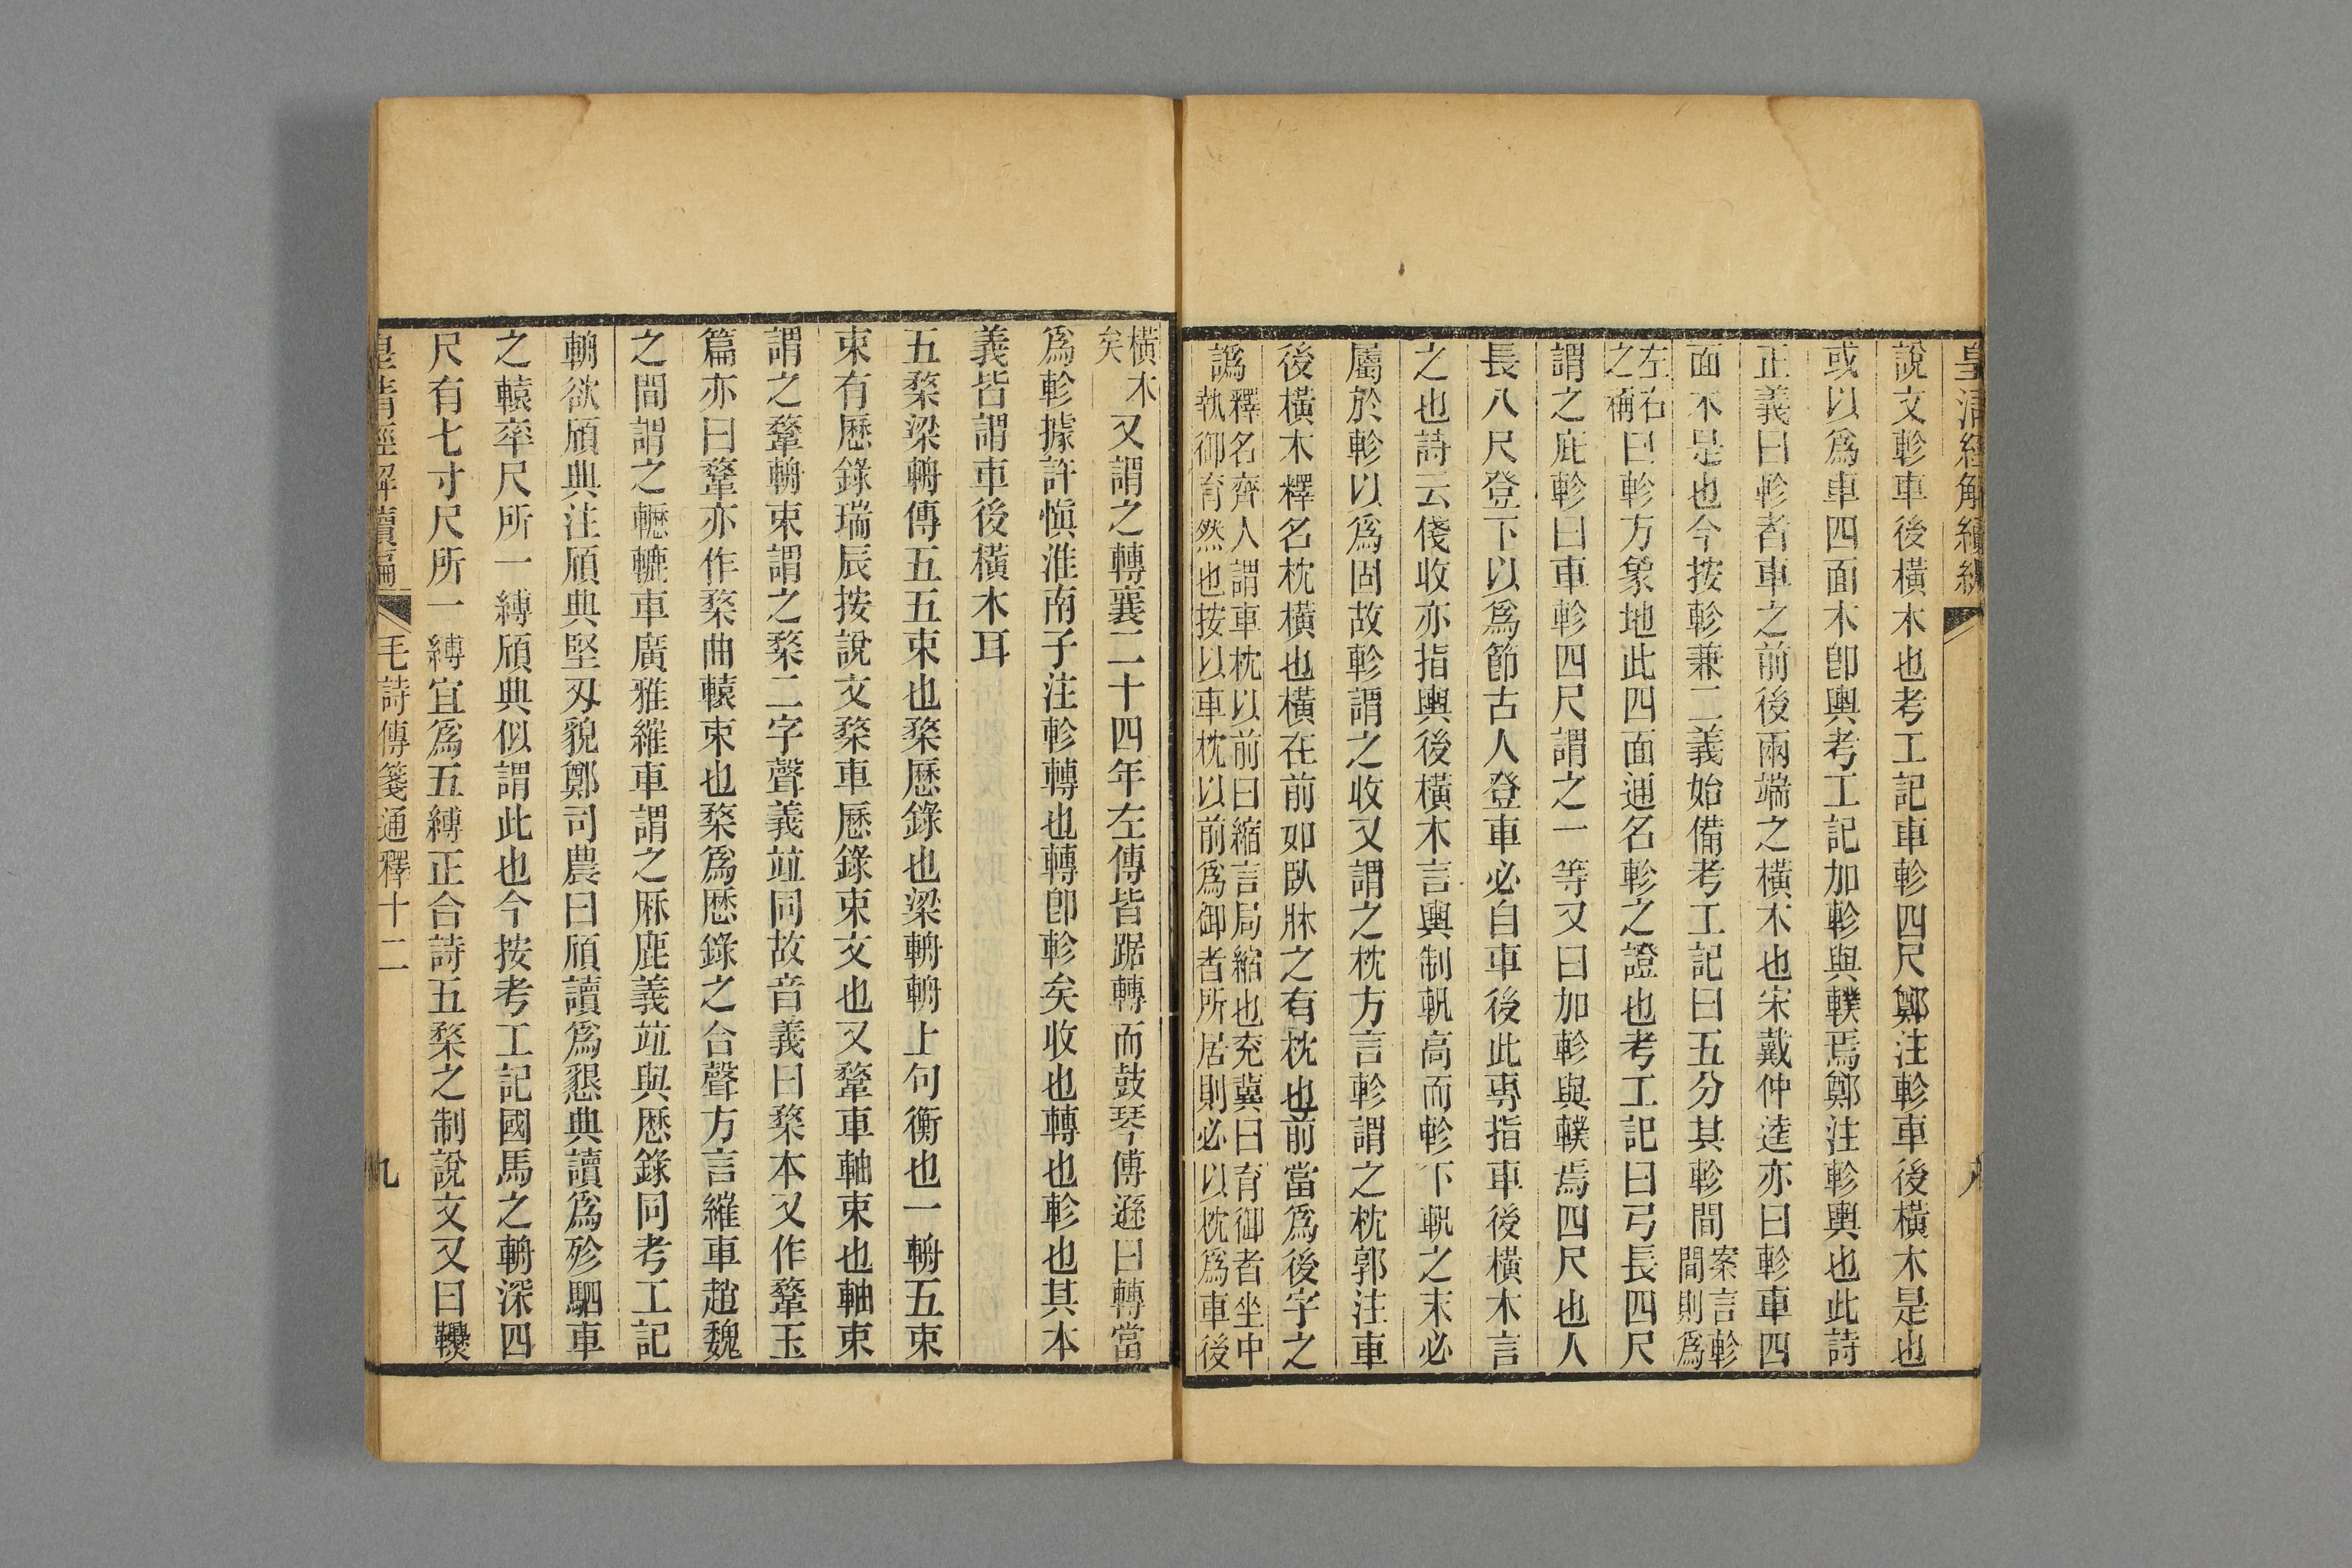 皇清經解續編
說文軫車後橫木也考工記車軫四尺鄭注軫車後橫木是也
或以爲車四面木卽輿考工記加軫與轐焉鄭注軫輿也此詩
正義曰軫者車之前後兩端之橫木也宋戴仲逵亦曰軫車四
面木是也今按軫兼二義始備考工記曰五分其軫間案言軫間則爲
左右之稱曰軫方象地此四面通名軫之證也考工記曰弓長四尺
謂之庇軫曰車軫四尺謂之一等又曰加軫與轐焉四尺也人
長八尺登下以爲節古人登車必自車後此專指車後橫木言
之也詩云俴收亦指輿後橫木言輿制軓高而軫下軓之末必
屬於軫以爲固故軫謂之收又謂之枕方言軫謂之枕郭注車
後橫木釋名枕橫也橫在前如臥牀之有枕也前當爲後字之
譌釋名齊人謂車枕以前曰縮言局縮也兗冀曰育御者坐中執御育然也按以車枕以前爲御者所居則必以枕爲車後
橫木矣又謂之轉襄二十四年左傳皆踞轉而鼓琴傅遜曰轉當
爲軫據許愼淮南子注軫轉也轉卽軫矣收也轉也軫也其本
義皆謂車後橫木耳
五楘梁輈傳五五束也楘歷錄也梁輈輈上句衡也一輈五束
束有歷錄瑞辰按說文楘車歷錄束文也又鞪車軸束也軸束
謂之鞪輈束謂之楘二字聲義竝同故音義曰楘本又作鞪玉
篇亦曰鞪亦作楘曲轅束也楘爲歷錄之合聲方言維車趙魏
之間謂之轣轆車廣雅維車謂之厤鹿義竝與歷錄同考工記
輈欲頎典注頎典堅刃貌鄭司農曰頎讀爲懇典讀爲殄駟車
之轅率尺所一縛頎典似謂此也今按考工記國馬之輈深四
尺有七寸尺所一縛宜爲五縛正合詩五楘之制說文又曰𩏊
皇清經解續編 毛詩傳箋通釋十二 九